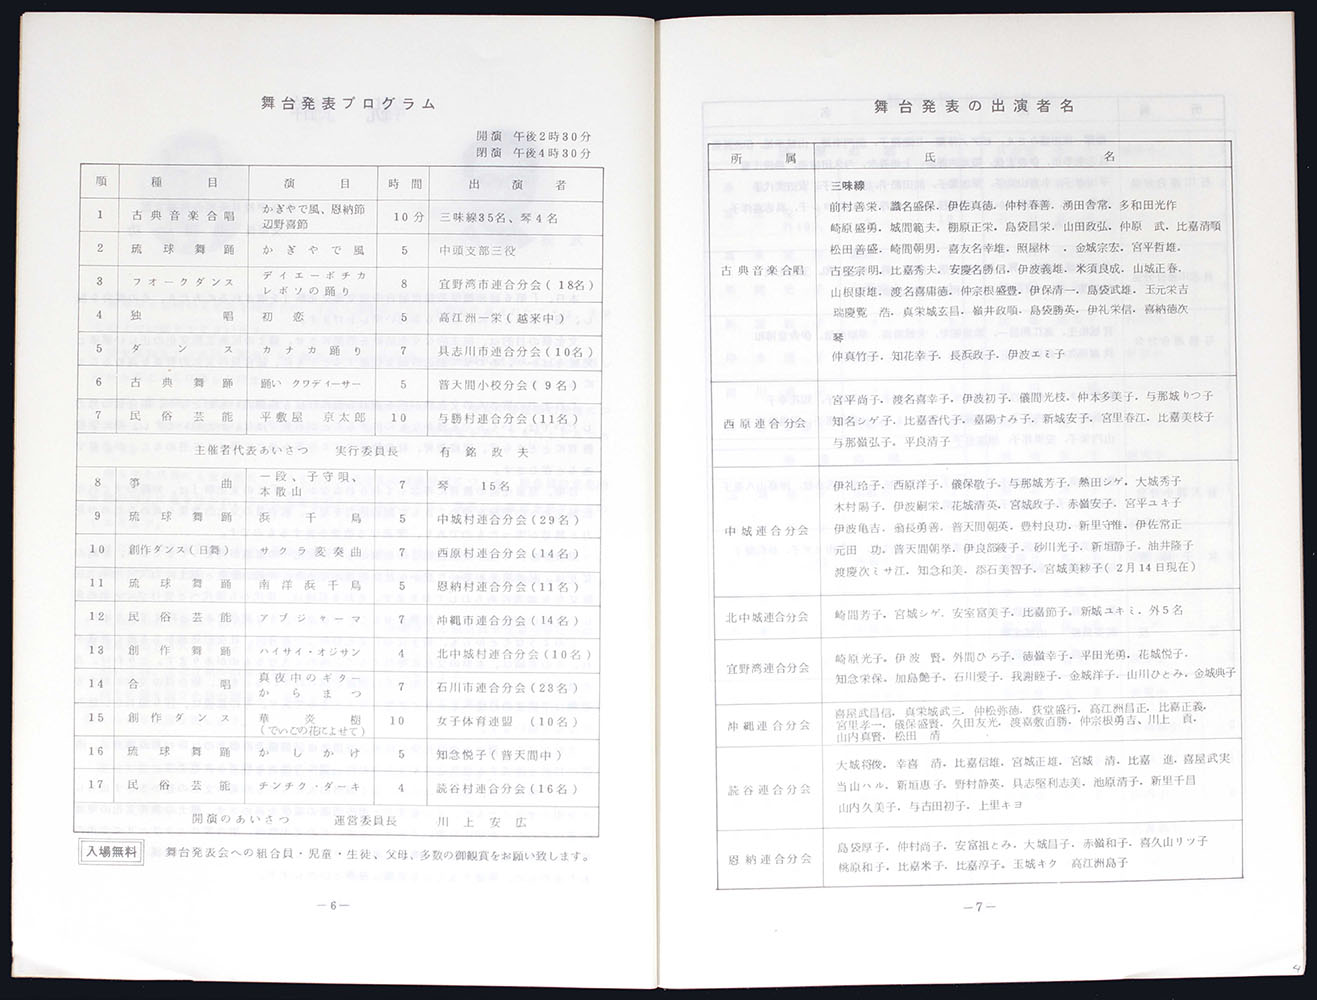 舞台発表プログラム
開演 午後2時30分
閉演 午後4時30分
順 種目 演目 時間 出演者
1 古典音楽合唱 かぎやで風、恩納節 辺野喜節 10分 三味線35名、琴4名
2 琉球舞踊 かぎやで風 5 中頭支部三役
3 フオークダンス デイエーボチカ レボソの踊り 8 宜野湾市連合分会(18名)
4 独唱 初恋 5 高江洲一栄(越来中)
5 ダンス カナカ踊り 7 具志川市連合分会(10名)
6 古典舞踊 踊い クワディーサー 5 普天間小校分会(9名)
7 民俗芸能 平敷屋 京太郎 10 与勝村連合分会(11名)
主催者代表あいさつ 実行委員長 有銘政夫
8 箏曲 一段、子守唄、本散山 7 琴 15名
9 琉球舞踊 浜千鳥 5 中城村連合分会(29名)
10 創作ダンス(日舞) サクラ変奏曲 7 西原村連合分会(14名)
11 琉球舞踊 南洋浜千鳥 5 恩納村連合分会(11名)
12 民俗芸能 アブジャーマ 7 沖縄市連合分会(14名)
13 創作舞踊 ハイサイ・オジサン 4 北中城村連合分会(10名)
14 合唱 真夜中のギター からまつ 7 石川市連合分会(23名)
15 創作ダンス 華炎樹 (でいごの花によせて) 10 女子体育連盟 (10名)
16 琉球舞踊 かしかけ 5 知念悦子(普天間中)
17 民俗芸能 チンチク・ダーキ 4 読谷村連合分会(16名)
開演のあいさつ 運営委員長 川上安広
入場無料 舞台発表会への組合員・児童・生徒、父母、多数の御観賞をお願い致します。
―6―
舞台発表の出演者名
所属 氏名
古典音楽合唱
三味線
前村善栄，識名盛保，伊佐真徳，仲村春善，湧田舎常，多和田光作
崎原盛勇，城間範夫，棚原正栄，島袋昌栄，山田政弘，仲原 武，比嘉清順
松田善盛，崎間朝男，喜友名幸雄，照屋林一，金城宗宏，宮平哲雄，
古堅宗明，比嘉秀夫，安慶名勝信，伊波義雄，米須良成，山城正春，
山根康雄，渡名喜庸徳，仲宗根盛豊，伊保清一，島袋武雄，玉元栄吉
瑞慶覧 浩，真栄城玄昌，嶺井政順，島袋勝英，伊礼栄信，喜納徳次
琴
仲真竹子，知花幸子，長浜政子，伊波エミ子
西原連合分会
宮平尚子，渡名喜幸子，伊波初子，儀間光枝，仲本多美子，与那城りつ子
知名シゲ子，比嘉香代子，嘉陽すみ子，新城安子，宮里春江，比嘉美枝子
与那嶺弘子，平良清子
中城連合分会
伊礼玲子，西原洋子，儀保敬子，与那城芳子，熱田シゲ，大城秀子
木村陽子，伊波嗣栄，花城清英，宮城政子，赤嶺安子，宮平ユキ子
伊波亀吉，翁長勇善，普天間朝英，豊村良功，新里守惟，伊佐常正
元田 功，普天間朝挙，伊良部綾子，砂川光子，新垣静子，油井隆子
渡慶次ミサ江，知念和美，添石美智子，宮城美紗子(2月14日現在)
北中城連合分会
崎間芳子，宮城シゲ，安室富美子，比嘉節子，新城ユキミ，外5名
宜野湾連合分会
崎原光子，伊波 賢，外間ひろ子，徳嶺幸子，平田光勇，花城悦子，
知念栄保，加島艶子，石川愛子，我謝睦子，金城洋子，山川ひとみ，金城典子
沖縄連合分会
喜屋武昌信，真栄城武三，仲松弥徳，荻堂盛行，高江洲昌正，比嘉正義，
宮里孝一，儀保盛賢，久田友光，渡嘉敷直勝，仲宗根勇吉，川上 貢，
山内真賢，松田 清
読谷連合分会
大城将俊，幸喜 清，比嘉信雄，宮城正雄，宮城 清，比嘉 進，喜屋武実
当山ハル，新垣恵子，野村静英，具志堅利志美，池原清子，新里千昌
山内久美子，与古田初子，上里キヨ
恩納連合分会
島袋厚子，仲村尚子，安富祖とみ，大城昌子，赤嶺和子，喜久山リツ子
桃原和子，比嘉米子，比嘉淳子，玉城キク 高江洲島子
―7―